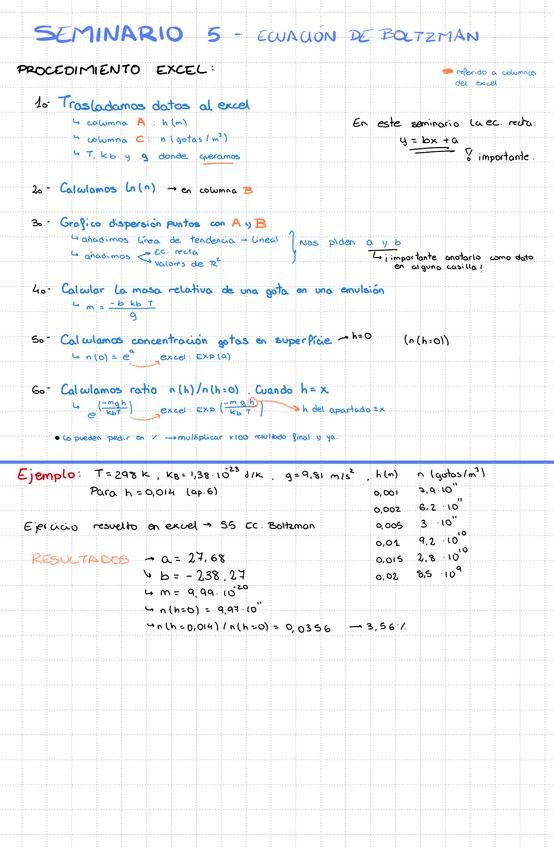 SEMINARIO 5 - ECUACIÓN DE BOLTZMAN
PROCEDIMIENTO EXCEL:
referido a columnas
del excel.
1o- Trasladamos datos al excel
↳ columna A : h(m)
↳ columna C : n (gotas/m³)
↳ T, kb y g donde queramos
En este seminario la ec. recta:
y = bx + a
! importante.
2o- Calculamos ln(n) → en columna B
3o- Grafico dispersión puntos con A y B
↳ añadimos línea de tendencia → lineal
↳ añadimos
Ec. recta
valores de R²
Nos piden a y b
↳ ¡importante anotarlo como dato
en alguna casilla!
4o- Calcular la masa relativa de una gota en una emulsión
↳ m = -b kb T / g
5o- Calculamos concentración gotas en superficie → h=0 (n(h=0))
↳ n(0) = e^a excel: EXP(a)
6o- Calculamos ratio n(h)/n(h=0). Cuando h = x
↳ e^(-mgh/kbT) excel: EXP(-mgh/kbT) → h del apartado = x.
• Lo pueden pedir en % → multiplicar x100 resultado final y ya.
Ejemplo: T = 298 K , KB = 1,38·10⁻²³ J/K , g = 9,81 m/s² ,
Para h = 0,014 (ap. 6)
h(m) n (gotas/m³)
0,001 7,9·10¹¹
0,002 6.2 ·10¹¹
0,005 3 ·10¹¹
0,01 9,2 ·10¹⁰
0,015 2,8 ·10¹⁰
0,02 8,5 ·10⁹
Ejercicio resuelto en excel → S5 EC. Boltzman
RESULTADOS → a = 27,68
↳ b = -238,27
↳ m = 9,99·10⁻²⁰
↳ n(h=0) = 9,97·10¹¹
↳ n(h=0,014)/n(h=0) = 0,0356 → 3,56%